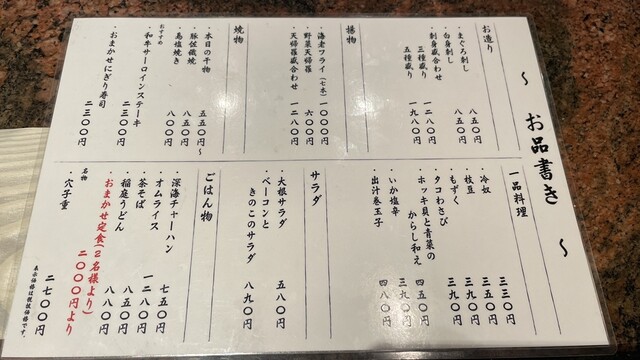 〜 お品書き 〜
お造り
・まぐろ刺し 八五〇円
・白身刺し 八五〇円
・刺身盛合わせ
三種盛り 一二八〇円
五種盛り 一九八〇円
揚物
・海老フライ(七本) 一〇〇〇円
・野菜天婦羅 六〇〇円
・天婦羅盛合わせ 一二八〇円
焼物
・本日の干物 五五〇円〜
八五〇円
・鳥塩焼き 八〇〇円
おすすめ
・和牛サーロインステーキ 二三〇〇円
・おまかせにぎり寿司 二三〇〇円
一品料理
・冷奴 三三〇円
・枝豆 三五〇円
・もずく 三九〇円
・タコわさび 三九〇円
・ホッキ貝と青菜の
からし和え 四五〇円
・いか塩辛 三九〇円
・出汁巻玉子 四八〇円
サラダ
・大根サラダ 五八〇円
・ベーコンと
きのこのサラダ 八九〇円
ごはん物
・深海チャーハン 七五〇円
・オムライス 一二八〇円
・茶そば 八五〇円
・稲庭うどん 八八〇円
・おまかせ定食(2名様より)
二〇〇〇円より
名物
・穴子重 二七〇〇円
表示価格は税抜価格です。